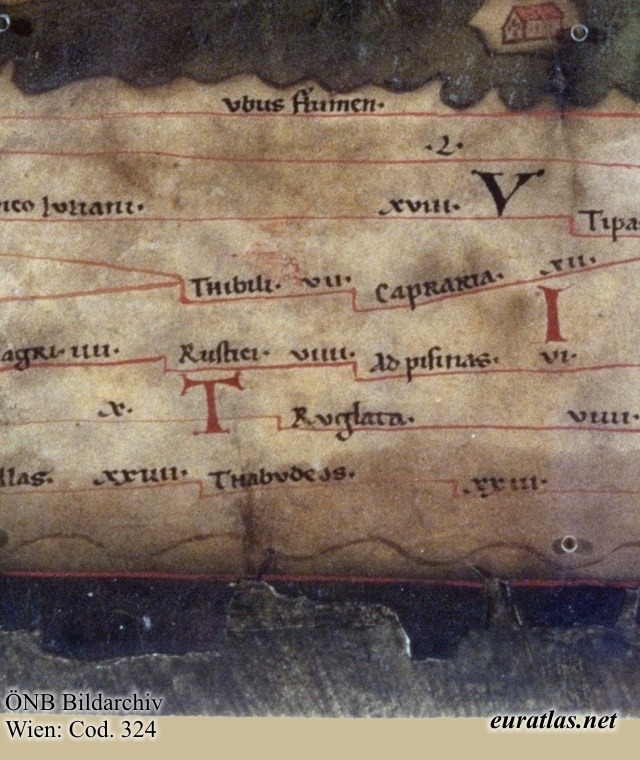 vbus flumen·
·L·
ico Iuliani· xviii· V
Tipa
Thibili· vii· Capraria· xii·
I
agri· iiii· Rustici· viiii· Ad piscinas· vi·
x· T Ruglata· viiii·
llas· xxviii· Thabudeos· xxiii·
ÖNB Bildarchiv
Wien: Cod. 324
euratlas.net